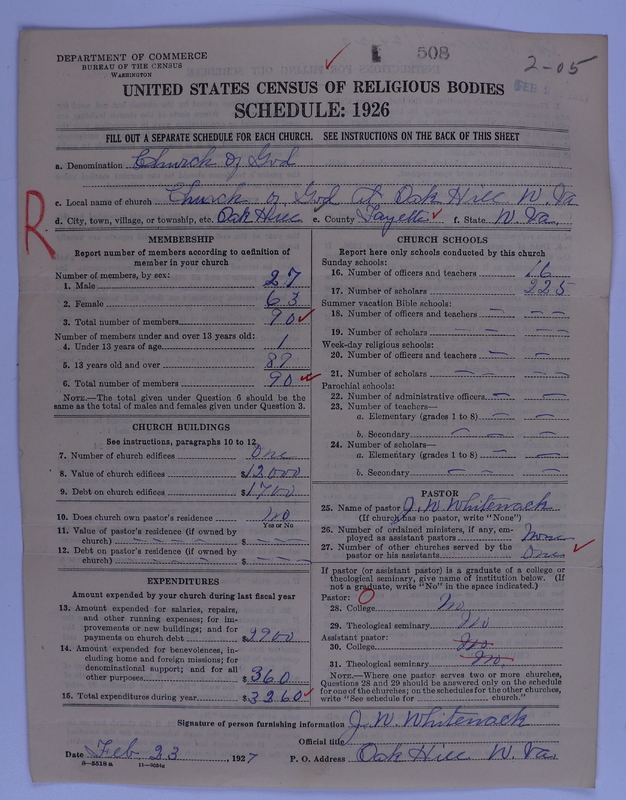 508
2-05
FEB
DEPARTMENT OF COMMERCE
BUREAU OF THE CENSUS
WASHINGTON
UNITED STATES CENSUS OF RELIGIOUS BODIES
SCHEDULE: 1926
FILL OUT A SEPARATE SCHEDULE FOR EACH CHURCH. SEE INSTRUCTIONS ON THE BACK OF THIS SHEET
a. Denomination Church of God
c. Local name of church Church of God at Oak Hill W. Va
d. City, town, village, or township, etc. Oak Hill e. County Fayette f. State W. Va.
R
MEMBERSHIP
Report number of members according to definition of
member in your church
Number of members, by sex:
1. Male 27
2. Female 63
3. Total number of members 90
Number of members under and over 13 years old:
4. Under 13 years of age 1
5. 13 years old and over 89
6. Total number of members 90
NOTE.—The total given under Question 6 should be
the same as the total of males and females given under Question 3.
CHURCH BUILDINGS
See instructions, paragraphs 10 to 12
7. Number of church edifices One
8. Value of church edifices $12000
9. Debt on church edifices $1700
10. Does church own pastor's residence no
Yes or No
11. Value of pastor's residence (if owned by
church) $
12. Debt on pastor's residence (if owned by
church) $
EXPENDITURES
Amount expended by your church during last fiscal year
13. Amount expended for salaries, repairs,
and other running expenses; for im-
provements or new buildings; and for
payments on church debt $2900
14. Amount expended for benevolences, in-
cluding home and foreign missions; for
denominational support; and for all
other purposes $360
15. Total expenditures during year $3260
CHURCH SCHOOLS
Report here only schools conducted by this church
Sunday schools:
16. Number of officers and teachers 16
17. Number of scholars 225
Summer vacation Bible schools:
18. Number of officers and teachers — —
19. Number of scholars — —
Week-day religious schools:
20. Number of officers and teachers — —
21. Number of scholars — —
Parochial schools:
22. Number of administrative officers — —
23. Number of teachers—
a. Elementary (grades 1 to 8) — —
b. Secondary — —
24. Number of scholars—
a. Elementary (grades 1 to 8) — —
b. Secondary — —
PASTOR
25. Name of pastor J. W. Whitenack
(If church has no pastor, write "None")
26. Number of ordained ministers, if any, em-
ployed as assistant pastors None
27. Number of other churches served by the
pastor or his assistants One
If pastor (or assistant pastor) is a graduate of a college or
theological seminary, give name of institution below. (If
not a graduate, write "No" in the space indicated.)
Pastor: O
28. College No
29. Theological seminary No
Assistant pastor:
30. College No
31. Theological seminary No
NOTE.—Where one pastor serves two or more churches,
Questions 28 and 29 should be answered only on the schedule
for one of the churches; on the schedules for the other churches,
write "See schedule for church."
Signature of person furnishing information J. W. Whitenack
Official title
Date Feb 23, 1927 P. O. Address Oak Hill W. Va.
8-5518a 11-9034a